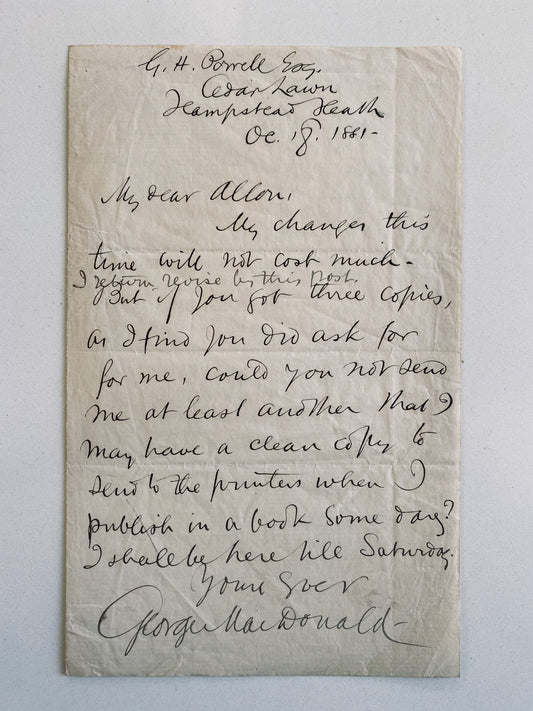 G. H. Powell Esq.
Cedar Lawn
Hampstead Heath
Oc. 18. 1881-
My dear Allon,
My changes this
time will not cost much-
I return revise by this post.
But if you got three copies,
as I find you did ask for
for me, could you not send
me at least another that I
may have a clean copy to
send to the printers when I
publish in a book some day?
I shall be here till Saturday.
Yours Ever
George MacDonald-